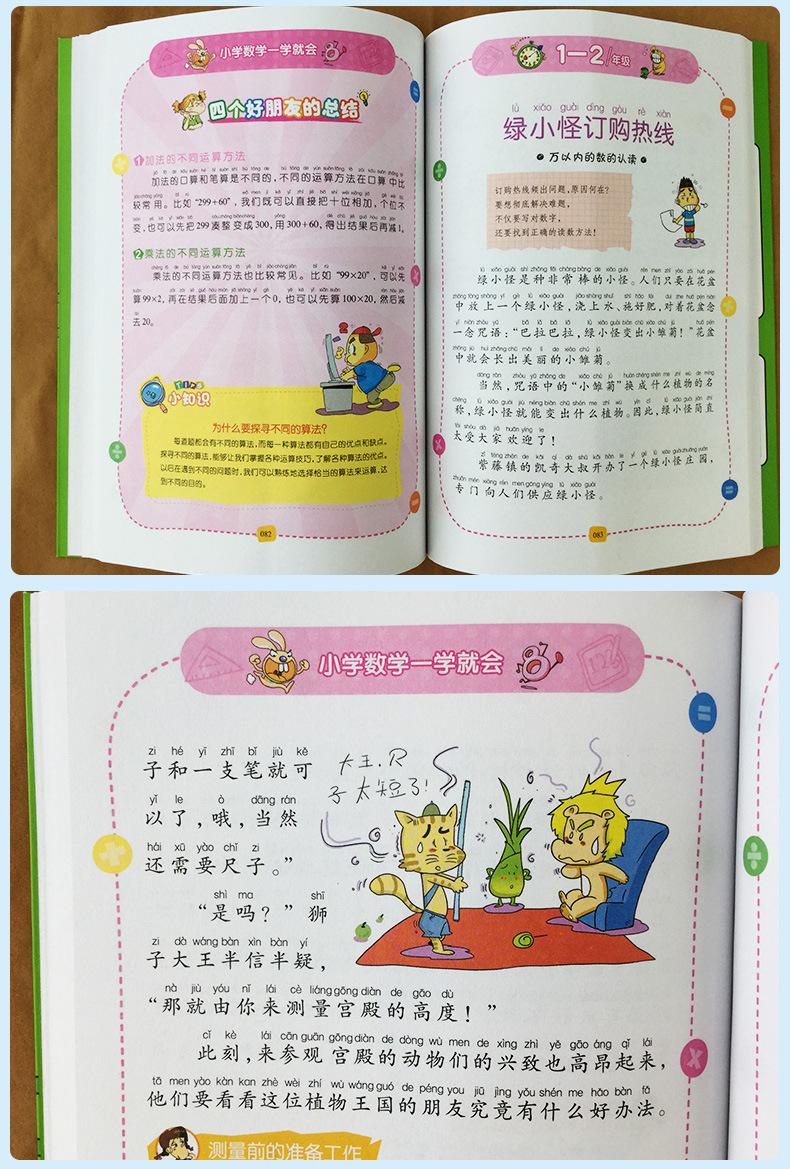 小学数学一学就会
四个好朋友的总结
1加法的不同运算方法
加法的口算和笔算是不同的,不同的运算方法在口算中比
较常用。比如“299+60”,我们既可以直接把十位相加,个位不
变,也可以先把299凑整变成300,用300+60,得出结果后再减1。
2乘法的不同运算方法
乘法的不同运算方法也比较常见。比如“99×20”,可以先
算99×2,再在结果后面加上一个0,也可以先算100×20,然后减
去20。
Tips
小知识
为什么要探寻不同的算法?
每道题都会有不同的算法,而每一种算法都有自己的优点和缺点。
探寻不同的算法,能够让我们掌握各种运算技巧,了解各种算法的优点。
以后在遇到不同的问题时,我们可以熟练地选择恰当的算法来运算,达
到不同的目的。
082
1—2/年级
lǜ xiǎo guài dìng gòu rè xiàn
绿小怪订购热线
万以内的数的认读
订购热线频出问题,原因何在?
要想彻底解决难题,
不仅要写对数字,
还要找到正确的读数方法!
绿小怪是种非常棒的小怪。人们只要在花盆
中放上一个绿小怪,浇上水、施好肥,对着花盆念
一念咒语:“巴拉巴拉,绿小怪变出小雏菊!”花盆
中就会长出美丽的小雏菊。
当然,咒语中的“小雏菊”换成什么植物的名
称,绿小怪就能变出什么植物。因此,绿小怪简直
太受大家欢迎了!
紫藤镇的凯奇大叔开办了一个绿小怪庄园,
专门向人们供应绿小怪。
083
小学数学一学就会
zi hé yī zhī bǐ jiù kě
子和一支笔就可
yǐ le ò dāng rán
以了,哦,当然
hái xū yào chǐ zi
还需要尺子。”
shì ma shī
“是吗?”狮
zi dà wáng bàn xìn bàn yí
子大王半信半疑,
大王,尺
子太短了!
nà jiù yóu nǐ lái cè liáng gōng diàn de gāo dù
“那就由你来测量宫殿的高度!”
cǐ kè lái cān guān gōng diàn de dòng wù men de xìng zhì yě gāo áng qǐ lái
此刻,来参观宫殿的动物们的兴致也高昂起来,
tā men yào kàn kan zhè wèi zhí wù wáng guó de péng you jiū jìng yǒu shén me hǎo bàn fǎ
他们要看看这位植物王国的朋友究竟有什么好办法。
测量前的准备工作